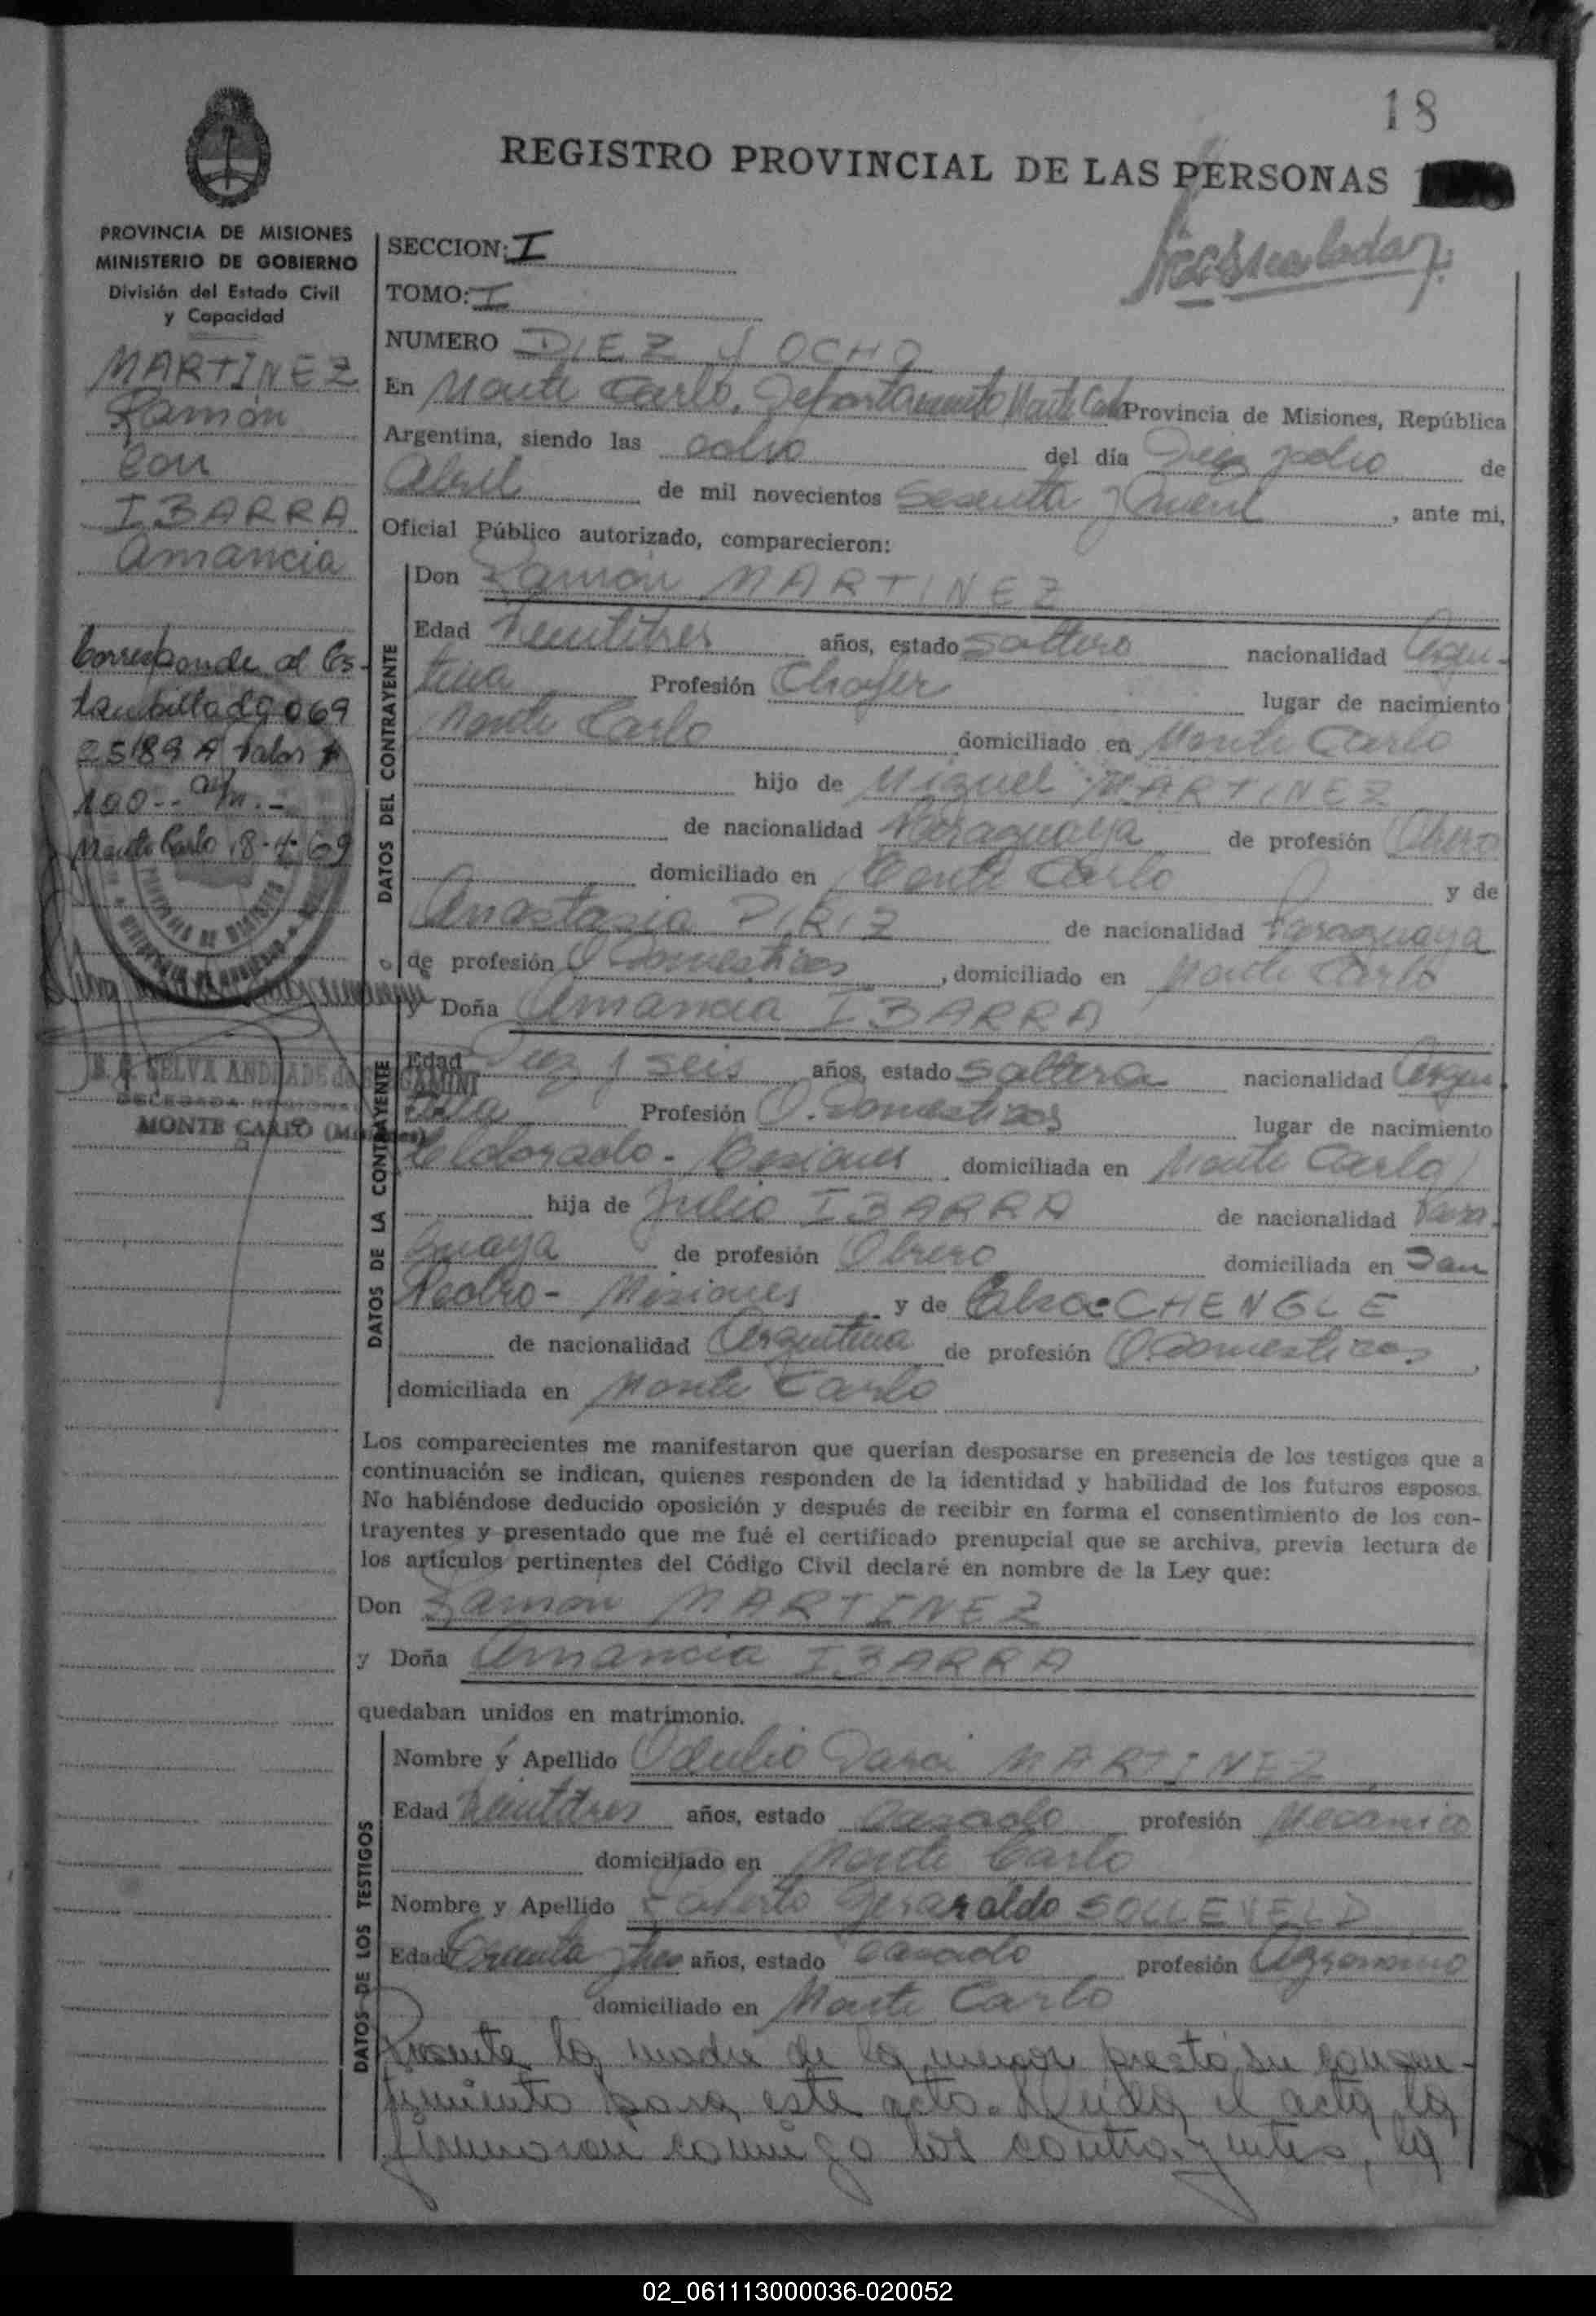 18
REGISTRO PROVINCIAL DE LAS PERSONAS
PROVINCIA DE MISIONES
MINISTERIO DE GOBIERNO
División del Estado Civil
y Capacidad
MARTINEZ
Ramón
con
IBARRA
Amancia
Corresponde al Es-
tampillado 069
25189 A Valor
100.- m/n.-
Monte Carlo 18-4-69
MONTE CARLO
SECCION: I
TOMO: I
NUMERO DIEZ Y OCHO
En Monte Carlo, Departamento Monte Carlo Provincia de Misiones, República
Argentina, siendo las ocho del día Diez y ocho de
Abril de mil novecientos Sesenta y nueve, ante mi,
Oficial Público autorizado, comparecieron:
DATOS DEL CONTRAYENTE
Don Ramón MARTINEZ
Edad Veintitres años, estado Soltero nacionalidad Argen-
tina Profesión Chofer lugar de nacimiento
Monte Carlo domiciliado en Monte Carlo
hijo de Miguel MARTINEZ
de nacionalidad Paraguaya de profesión Obrero
domiciliado en Monte Carlo y de
Anastasia PIRIZ de nacionalidad Paraguaya
de profesión Q. Domesticos, domiciliado en Monte Carlo
DATOS DE LA CONTRAYENTE
y Doña Amancia IBARRA
Edad Diez y seis años, estado Soltera nacionalidad Argen-
tina Profesión Q. Domesticos lugar de nacimiento
Eldorado - Misiones domiciliada en Monte Carlo
hija de Julio IBARRA de nacionalidad Para-
guaya de profesión Obrero domiciliada en San
Pedro - Misiones y de CHENGLE
de nacionalidad Argentina de profesión Q. Domesticos,
domiciliada en Monte Carlo
Los comparecientes me manifestaron que querían desposarse en presencia de los testigos que a
continuación se indican, quienes responden de la identidad y habilidad de los futuros esposos.
No habiéndose deducido oposición y después de recibir en forma el consentimiento de los con-
trayentes y presentado que me fué el certificado prenupcial que se archiva, previa lectura de
los artículos pertinentes del Código Civil declaré en nombre de la Ley que:
Don Ramón MARTINEZ
y Doña Amancia IBARRA
quedaban unidos en matrimonio.
DATOS DE LOS TESTIGOS
Nombre y Apellido Odulio Darci MARTINEZ
Edad Veintitres años, estado Casado profesión Mecanico
domiciliado en Monte Carlo
Nombre y Apellido Roberto Geraraldo SOLLEVELD
Edad Treinta y tres años, estado Casado profesión Agronomo
domiciliado en Monte Carlo
Presente la madre de la menor presta su consen-
timiento para este acto. Leida el acta la
firmaron conmigo los contrayentes, la
02_061113000036-020052